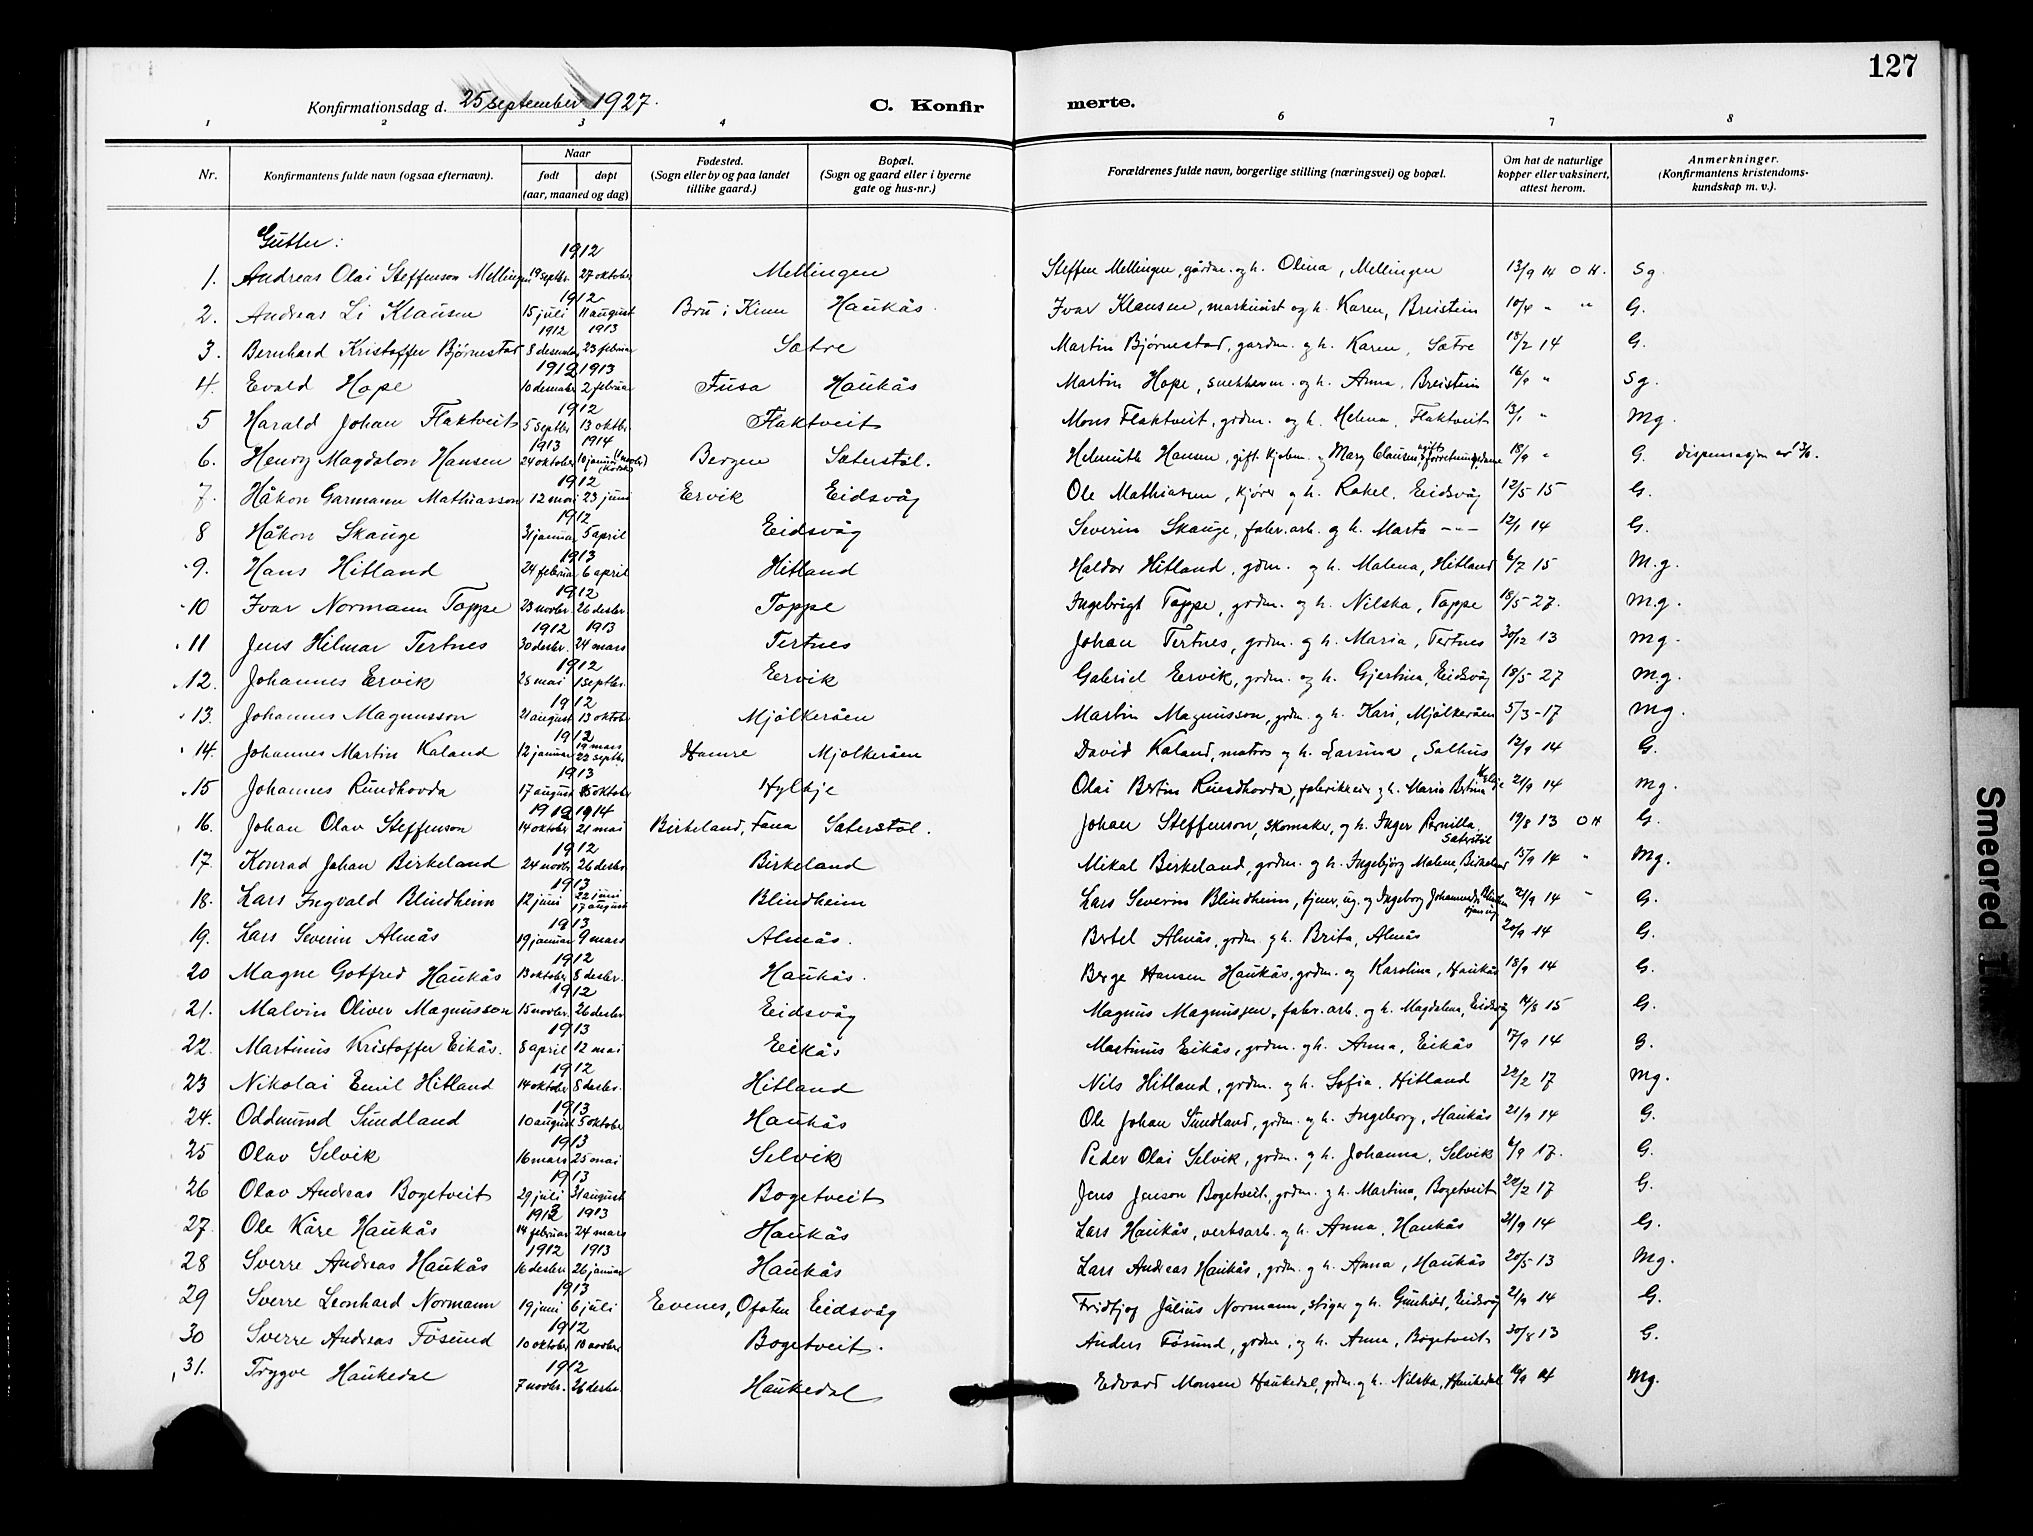 127
Konfirmationsdag d. 25 september 1927.
C. Konfirmerte.
1 2 3 4 6 7 8
Nr. Konfirmantens fulde navn (ogsaa efternavn). Naar født døpt (aar, maaned og dag) Fødested. (Sogn eller by og paa landet tillike gaard.) Bopæl. (Sogn og gaard eller i byerne gate og hus-nr.) Forældrenes fulde navn, borgerlige stilling (næringsvei) og bopæl. Om hat de naturlige kopper eller vaksinert, attest herom. Anmerkninger. (Konfirmantens kristendomskundskap m. v.).
Gutter:
1912
1. Andreas Olai Steffenson Mellingen 19 septbr. 27 oktober Mellingen Steffen Mellingen, gårdm. og h. Olina, Mellingen 13/9 14 O H. Sg.
1912
2. Andreas Li Klausen 15 juli 11 august Bru i Kinn Haukås. Ivar Klausen, maskinist og h. Karen, Breistein 10/4 " " G.
1912 1913
3. Bernhard Kristoffer Bjørnestad 8 desember 23 februar Sætre Martin Bjørnestad, gardm. og h. Karen, Sætre 18/2 14 G.
1912 1913
4. Evald Hope 10 desember 2 februar Fusa Haukås Martin Hope, snekkerm. og h. Anna, Breistein 16/9 " Sg.
1912
5 Harald Johan Flaktveit 5 septbr 13 oktbr. Flaktveit Mons Flaktveit, grdm. og h. Helena, Flaktveit 13/1 " Mg.
1913 1914
6. Henry Magdalon Hansen 24 oktober 10 januar Bergen Sæterstøl. Helmuth Hansen, gift. kjøbm. og Mary Clausen, 18/9 " G. dispensasjon av
1912
7. Håkon Garmann Mathiasson 12 mai 23 juni Ervik Eidsvåg Ole Mathiasen, kjører og h. Rakel, Eidsvåg 12/5 15 G.
1912
8 Håkon Skauge 31 januar 5 april Eidsvåg Severin Skauge, fabr. arb. og h. Marta -"- 12/1 14 G.
1913
9. Hans Hitland 24 februar 6 april Hitland Haldor Hitland, gdm. og h. Malena, Hitland 6/7 15 M.g.
1912
10 Ivar Normann Toppe 23 novbr. 26 desbr. Toppe Ingebrigt Toppe, grdm. og h. Nilska, Toppe 18/5 27. M.g.
1912 1913
11 Jens Hilmar Tertnes 30 desbr. 24 mars Tertnes Johan Tertnes, grdm. og h. Maria, Tertnes 30/12 13 Mg.
1912
12. Johannes Ervik 28 mai 1 septbr. Ervik Gabriel Ervik, grdm. og h. Gjertina, Eidsvåg 18/5 27 M.g.
1912
13. Johannes Magnusson 21 august 13 oktobr Mjølkeråen Martin Magnusson, grdm. og h. Kari, Mjølkeråen 5/3 - 17 Mg.
1912
14. Johannes Martin Kaland 12 januar 19 mars 22 septbr. Hamre Mjølkeråen David Kaland, matros og h. Larsina, Salhus 12/9 14 G.
1913
15 Johannes Rundhovda 17 august 5 oktober Hylkje Olai Bertin Rundhovda, fabrikkeier og h. Maria Bertina Hylkje 21/9 14 Mg.
1912 1914
16. Johan Olav Steffenson 14 oktober 21 mai Birkeland, Fana Sæterstøl. Johan Steffenson, skomaker, og h. Inger Pernilla, Sæterstøl 19/8 13 O H G.
1912
17. Konrad Johan Birkeland 24 novbr. 26 desbr. Birkeland Mikal Birkeland, grdm. og h. Ingebjørg Malene, Birkeland 15/9 14 " Mg.
1913
18. Lars Ingvald Blindheim 12 juni 22 juni 17 august Blindheim Lars Severin Blindheim, tjener, ug. og Ingeborg 21/9 14 " G.
1913
19. Lars Severin Almås 19 januar 9 mars Almås. Bertel Almås, grdm. og h. Brita, Almås 20/9 14 G.
1912
20 Magne Gotfred Haukås 13 oktober 8 desbr. Haukås. Berge Hansen Haukås, grdm. og Karolina, Haukås 18/9 14 G.
1912
21. Malvin Oliver Magnusson 15 novbr. 26 desbr Eidsvåg Magnus Magnussen, fabr. arb. og h. Magdalena, Eidsvåg 14/8 15 G.
1913
22. Martinus Kristoffer Eikås. 8 april 12 mai Eikås Martinus Eikås, grdm. og h. Anna, Eikås 17/9 14 G.
1912
23 Nikolai Emil Hitland 14 oktober 8 desbr. Hitland Nils Hitland, grdm. og h. Sofia, Hitland 22/2 17 Mg.
1913
24. Oddmund Sundland 10 august 5 oktober Haukås Ole Johan Sundland, grdm. og h. Ingeborg, Haukås 21/9 14 G.
1913
25 Olav Selvik 16 mars 25 mai Selvik Peder Olai Selvik, grdm. og h. Johanna, Selvik 6/9 17. G.
1913
26 Olav Andreas Bogetveit 29 juli 31 august Bogetveit Jens Jenson Bogetveit, grdm. og h. Martina, Bogetveit 22/2 17 G.
1913 1913
27. Ole Kåre Haukås 14 februar 24 mars Haukås Lars Haukås, verksarb. og h. Anna, Haukås 21/9 14 G.
1912 1913
28 Sverre Andreas Haukås 16 desbr. 26 januar Haukås Lars Andreas Haukås, grdm. og h. Anna, Haukås 20/5 13 Mg.
1913
29 Sverre Leonhard Normann 19 juni 6 juli Evenes, Ofoten Eidsvåg Fridtjog Julius Normann, stiger og h. Gunhild, Eidsvåg 21/9 14 G.
1912
30 Sverre Andreas Føsund 10 oktober 10 novbr. Bogetveit. Anders Føsund, grdm. og h. Anna, Bogetveit 30/8 13 G.
1912
31. Trygve Haukedal 7 novbr. 26 desbr. Haukedal Edvard Monsen Haukedal, grdm. og h. Nilska, Haukedal 16/9 14 Mg.
Smeared